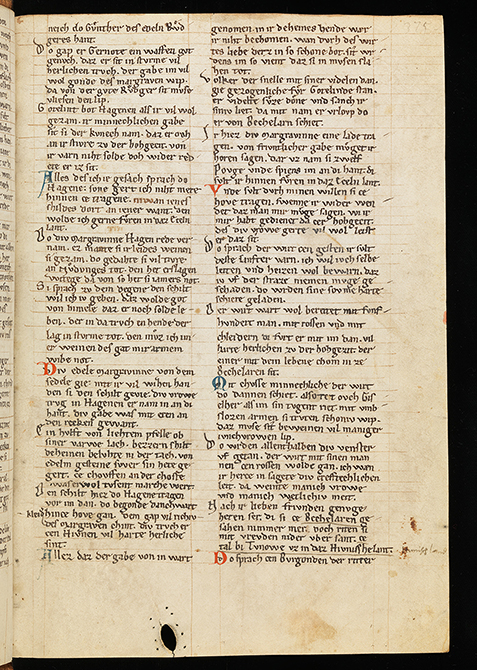 nem do Gunther des edeln Rvd
geres hant.
Do gap er Gernote ein waffen gvt
genvch. daz er sit in sturme vil
herlichen trvch. der gabe im vil
wol gonde des margraven wip.
da von der gvte Rvdger sit mvse
vliesen den lip.
Gotelint bot Hagenen als ir vil wol
gezam. ir minnechlichen gabe
sit si der kvnech nam. daz er ovch
an ir stivre zv der hohgecit. von
ir varn niht solde doh wider red
ete er iz sit.
Alles des ich ie gesach sprach do
Hagene. sone gert ich niht mere
hinnen ce tragene. niwan ienes
schildes dort an iener want. den
wolde ich gerne fvren in daz Eceln
lant.
Do div margravinne Hagen rede ver
nam. ez mante si ir leides weinen
si gezam. do gedahte si vil tivre
an Nvdvnges tot. den het erslagen
witege da von so het si iamers not.
Si sprach zv dem degene den schilt
wil ich iv geben. daz wolde got
von himele daz er noch solde le
ben. der in da trvch en hende der
lag in sturme tot. den mvz ich im
er weinen des gat mir armem
wibe not.
Div edele margravinne von dem
sedele gie. mit ir vil wizen han
den si den schilt gevie. div vrowe
trvg in Hagenen er nam in an di
hant. div gabe was mit eren an
den recken gewant.
Ein hvlft von liehtem pfelle ob
siner varwe lach. bezzern schilt
deheinen belvhte nie der tach. von
edelm gesteine swer sin hete ge
gert. ce chovffen an der choste
was er wol tvsent marche wert.
Den schilt hiez do Hagene tragen
vor im dan. do begonde Danchwart
hinne hove gan. dem gap vil richiv
des margraven chint. div trvch er
cen Hivnen vil harte herliche
sint.
Allez daz der gabe von in wart
genomen in ir deheines hende wær
ir niht bechomen. wan dvrch des wir
tes liebe derz in so schone bot. sit wr
dens im so vient daz si in mvsen sla
hen tot.
Volker der snelle mit siner videlen dan.
gie gezogenliche fvr Gotelinde stan.
er videlte svze done vnd sanch ir
siniv liet. da mit nam er vrlovp do
er von Bechelarn schiet.
Ir hiez div margravinne eine lade tra
gen. von frivntlicher gabe mvget ir
horen sagen. dar vz nam si zwelf
povge vnd spiens im an di hant. di
svlt ir hinnen fvren in daz Eceln lant.
Vnde svlt dvrh minen willen si ce
hove tragen. swenne ir wider wen
det daz man mir mvge sagen. wi ir
mir habt gedienet da cer hohgecit.
des div vrowe gerte vil wol leist
er daz sit.
Do sprach der wirt cen gesten ir svlt
deste sanfter varn. ich wil ivch selbe
leiten vnd heizen wol bewarn. daz
iv vf der straze niemen mvge ge
schaden. do wrden sine sovme harte
schiere geladen.
Der wirt wart wol bereitet mit fvnf
hundert man. mit rossen vnd mit
chleidern di fvrt er mit im dan. vil
harte herlichen zv der hohgecit. der
einer mit dem lebene chom in ze
Bechelaren sit.
Mit chvsse minnechliche der wirt
do dannen schiet.
lvnchvrowen lip.
Do wrden allenthalben div venster
vf getan. der wirt mit sinen man
nen cen rossen wolde gan. ich wæn
ir herce in sagete div creftechlichen
leit. da weinte manich vrowe
vnd manich wetlichiv meit.
Nach ir lieben frivnden genvge
heten ser. di si ce Bechelaren ge
sahen nimmer mer. doch riten si
mit vrevden nider vber sant. ce
tal bi Tvnowe vz in daz Hivnisshe lant.
Do sprach cen Burgonden der ritter